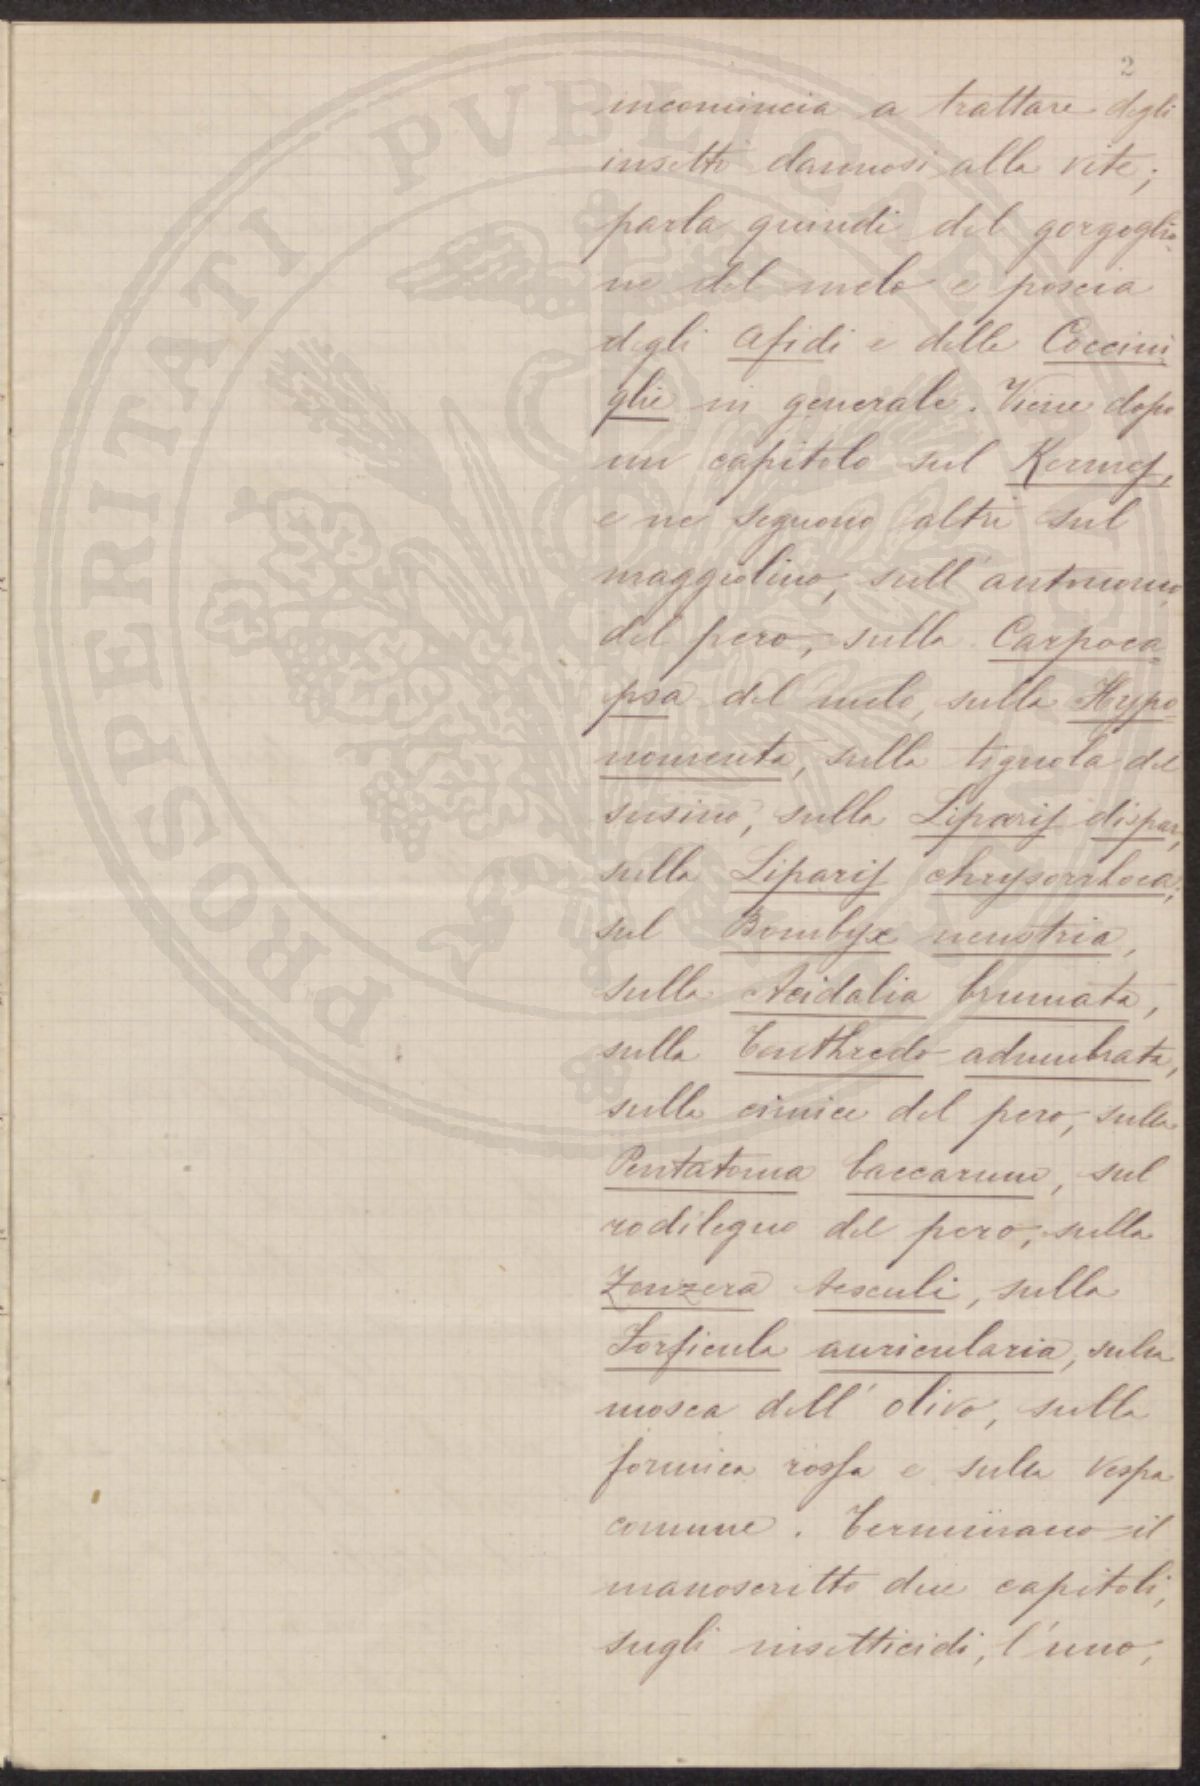 2
incomincia a trattare degli
insetti dannosi alla vite;
parla quindi del gorgoglio-
ne del melo e poscia
degli Afidi e delle Coccini-
glie in generale. Viene dopo
un capitolo sul Kermes,
e ne seguono altri sul
maggiolino, sull'antonomo
del pero, sulla Carpoca-
psa del melo, sulla Hypo-
nomenta, sulla tignola del
susino, sulla Liparis dispar,
sulla Liparis chrysorrhoea,
sul Bombyx neustria,
sulla Acidalia brumata,
sulla Tenthredo adumbrata,
sulla cimice del pero, sulla
Pentatoma baccarum, sul
rodilegno del pero, sulla
Zeuzera Aesculi, sulla
Forficula auricularia, sulla
mosca dell'olivo, sulla
formica rossa e sulla vespa
comune. Terminano il
manoscritto due capitoli,
sugli insetticidi, l'uno,
PROSPERITATI PVBLICAE